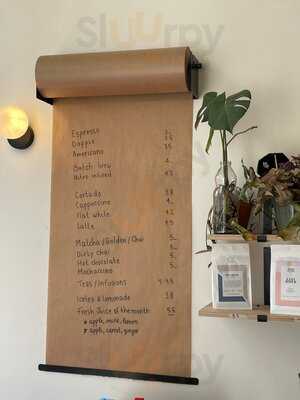 Sluurpy
Espresso 3.
Doppio 3.5
Americano 3.5
Batch brew 4.
Nitro infused 4.5
Cortado 3.8
Cappuccino 4.
Flat white 4.2
Latte 4.5
Matcha / Golden / Chai 5.
Dirty chai 5.
Hot chocolate 5.
Mochaccino 5.
Teas / Infusions
Iced tea & lemonade 3.8
Fresh Juice of the month: 5.5
apple,
apple, carrot, ginger